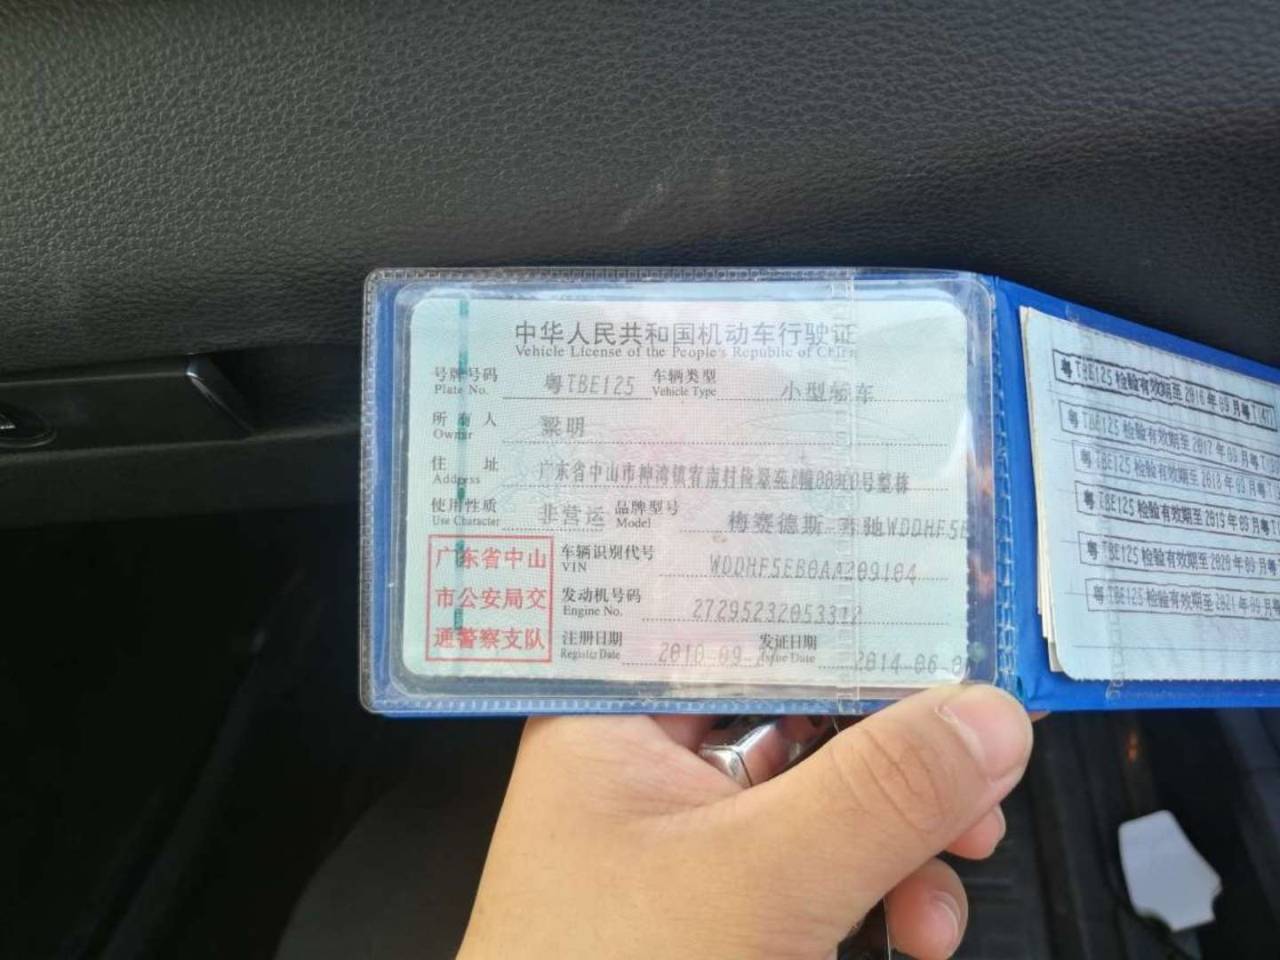 中华人民共和国机动车行驶证
Vehicle License of the People's Republic of China
号牌号码 粤TBE125 车辆类型 小型轿车
Plate No. Vehicle Type
所有人 梁明
Owner
住址 广东省中山市神湾镇宥南村
Address
使用性质 非营运 品牌型号 梅赛德斯-奔驰WDDHF5E
Use Character Model
广东省中山
市公安局交
通警察支队
车辆识别代号 WDDHF5EB0AA209104
VIN
发动机号码 27295232053312
Engine No.
注册日期 2010-09- 发证日期 2014-06-0
Register Date Issue Date
粤TBE125检验有效期至2016年09月粤T(47)
粤TBE125检验有效期至2017年09月粤T
粤TBE125检验有效期至2018年09月粤T
粤TBE125检验有效期至2019年09月粤T
粤TBE125检验有效期至2020年09月粤
粤TBE125检验有效期至2021年09月